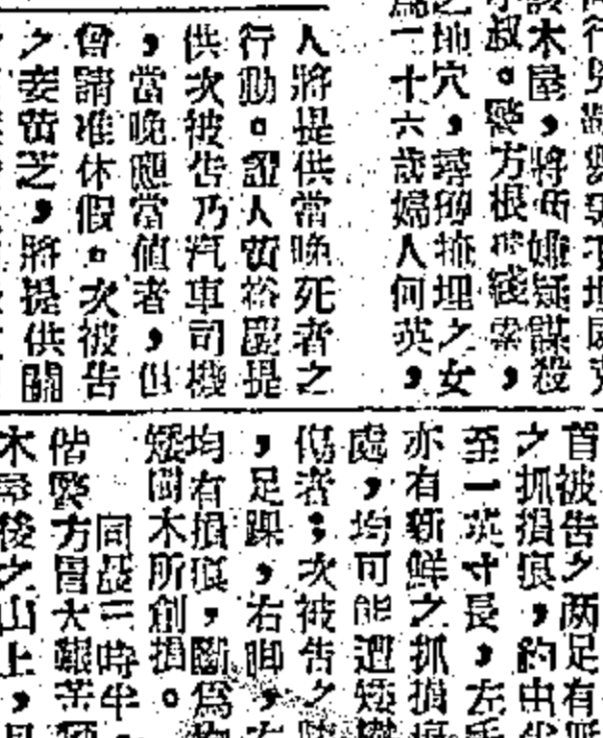 木屋，將所嫌疑謀殺
叔。警方根綫索，
之地穴，尋獲掩埋之女
為二十六歲婦人何英，
人將提供當晚死者之
行動。證人黃裕慶提
供次被告乃汽車司機
，當晚應當值者，但
曾請准休假。次被告
之妾黃芝，將提供關
首被告之两足有
之抓損痕，約由
至一英寸長，左
亦有新鮮之抓損痕
處，均可能遭矮樹
傷者；次被告之
，足踝，右脚，左
均有損痕，斷為
矮樹木所創損。
同晨三時半
偕警方冒大艱苦
木尋後之山上，